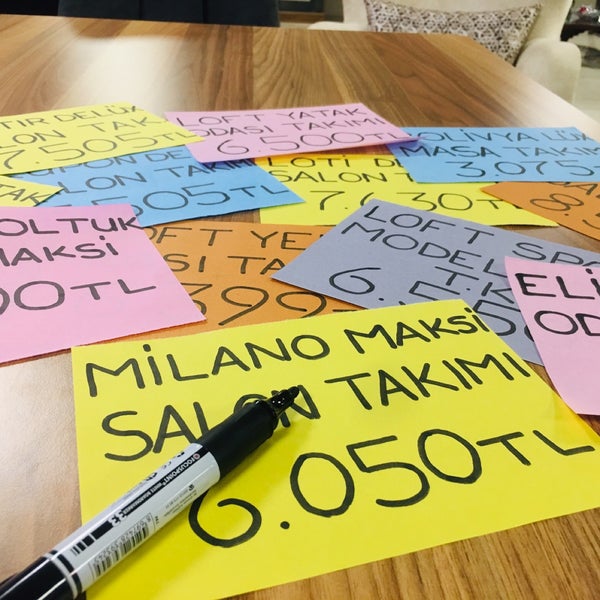 TIR DELÜX
SALON TAK
7.505 TL
LOFT YATAK
ODASI TAKIMI
6.500TL
OLİVYA LÜX
MASA TAKIMI
3.075
SALON TAKIMI
505TL
LOTİ
SALON TAKIMI
7.630TL
OLTUK
MAKSİ
00TL
OFT YE
SI TA
399
LOFT
MODEL
T.K
ELİ
OD
MİLANO MAKSİ
SALON TAKIMI
6.050TL
FOCUSPOINT